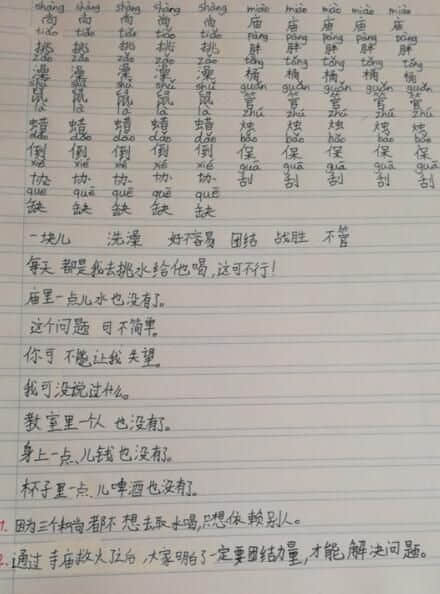 shàng shàng shàng shàng shàng miào miào mào miào miào
尚 尚 尚 尚 尚 庙 庙 庙 庙 庙
tiāo tiāo tiāo tiāo tiāo pàng pàng pàng pàng pàng
挑 挑 挑 挑 挑 胖 胖 胖 胖 胖
zǎo zǎo zǎo zǎo zǎo tǒng tǒng tǒng tǒng tǒng
澡 澡 澡 澡 澡 桶 桶 桶 桶 桶
shǔ shǔ shǔ shǔ shǔ guǎn guǎn guǎn guǎn guǎn
鼠 鼠 鼠 鼠 鼠 管 管 管 管 管
là là là là là zhú zhú zhú zhú zhú
蜡 蜡 蜡 蜡 蜡 烛 烛 烛 烛 烛
dǎo dǎo dǎo dǎo dǎo bǎo bǎo bǎo bǎo bǎo
倒 倒 倒 倒 倒 保 保 保 保 保
xié xié xié xié xié guā guā guā guā guā
协 协 协 协 协 刮 刮 刮 刮 刮
quē quē quē quē quē
缺 缺 缺 缺 缺
一块儿 洗澡 好不容易 团结 战胜 不管
每天都是我去挑水给他喝,这可不行!
庙里一点儿水也没有了。
这个问题可不简单。
你可不能让我失望。
我可没说过什么。
教室里一个人也没有了。
身上一点儿钱也没有了。
杯子里一点儿啤酒也没有了。
1. 因为三个和尚都不想去取水喝,只想依赖别人。
2. 通过寺庙救火以后,大家明白了一定要团结力量,才能解决问题。